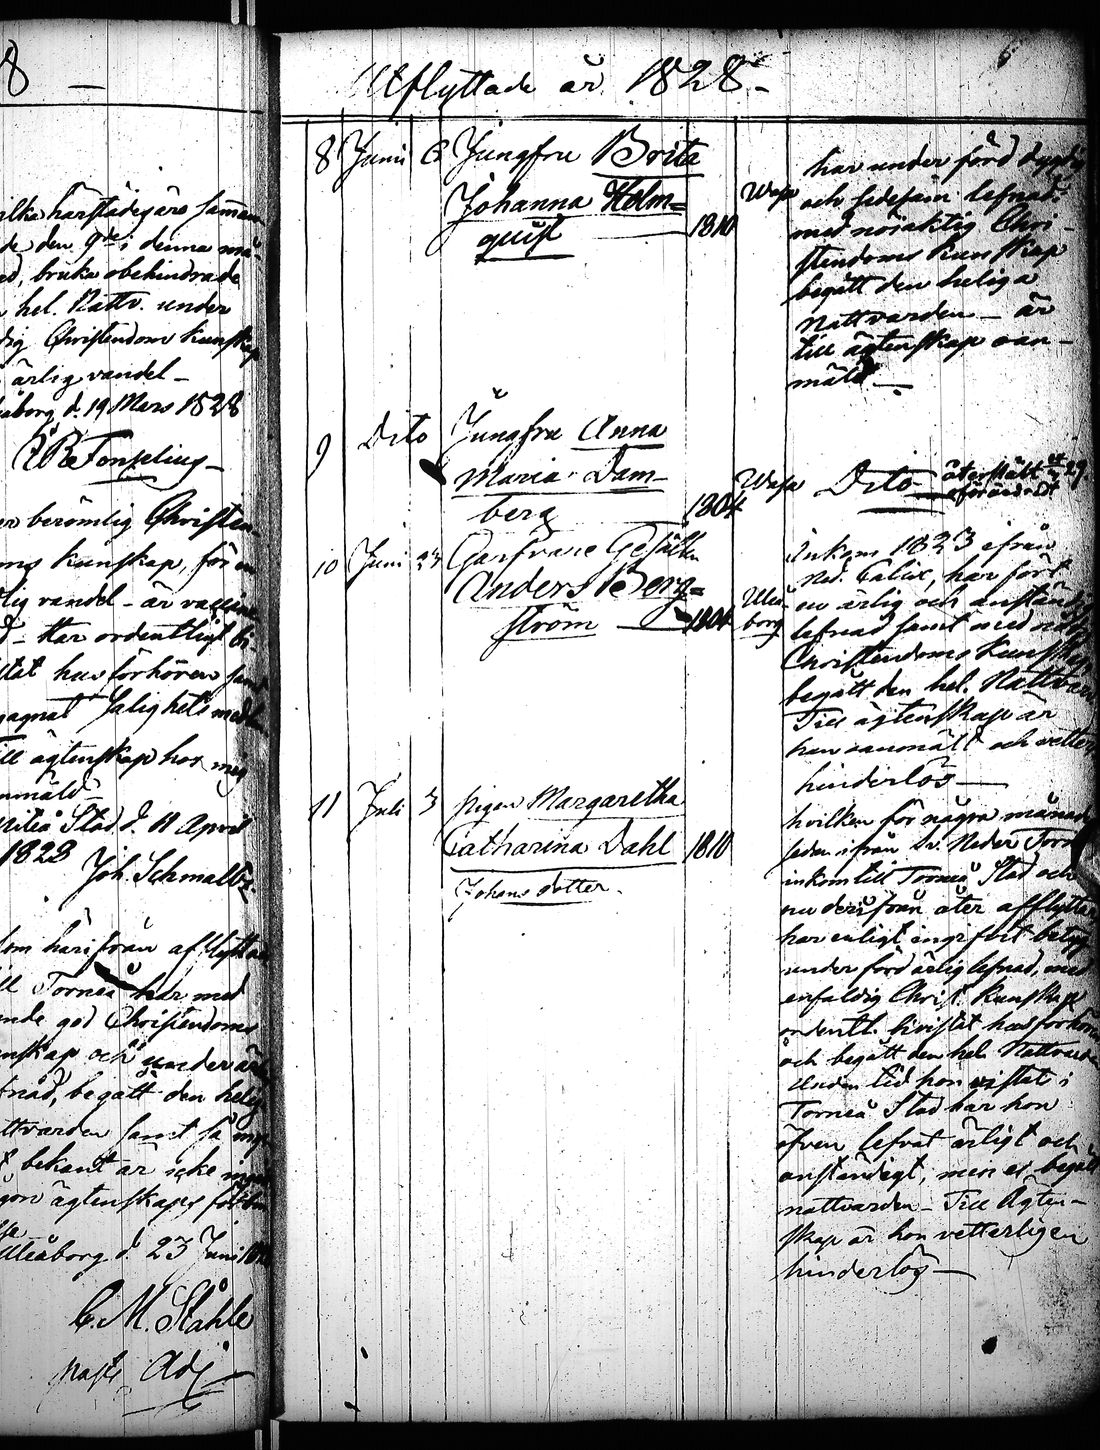 8 —
ilka härstädes äro samman
de den 9de i denna må-
ed, bruka obehindrade
hel. Nattv. under
dig Christendoms kunskap
ärlig vandel —
åborg d. 19 Mars 1828
er berömlig Christen-
oms kunskap, för en
lig vandel - är vaccine
d - Har ordentligt bi-
stat husförhören samt
Salighets medlen
till ägtenskap hos mig
anmäld
Piteå Stad d. 11 April
1828
Joh. Schmaltz
som härifrån afflyttad
till Torneå har med
nde god Christendoms
unskap och under ärlig
fnad, begått den helig
attvarden samt så
t bekant är icke
gon ägtenskaps
Uleåborg d. 23 Juni
C. M. Ståhle
Adj
6
Utflyttade år 1828 -
8 Juni 6 Jungfru Brita
Johanna Holm=
quist — 1810 Wasa
har under förd dygdig
och sedesam lefnad
med nöjaktig Chri-
stendoms kunskap
begått den heliga
Nattvarden — är
till ägtenskap oan-
mäld —
9 Dito Jungfru Anna
Maria Dam-
berg 1804 Wasa Dito återstält
10 Juni 23 Garfvare Gesällen
Anders Berg=
ström — 1804 Uleå-
borg
Inkom 1823 ifrån
Ned. Calix, har fört
en ärlig och anständig
lefnad samt med nöj
Christendoms Kunskap
begått den hel. Nattvard
Till ägtenskap är
han oanmält och vetterl
hinderlös —
11 Juli 3 Pigan Margaretha
Catharina Dahl 1810
Johans dotter.
hvilken för några månad
sedan ifrån Neder Torn
inkom till Torneå Stad och
nu derifrån åter afflyttar
har enligt ingifvit betyg
under förd ärlig lefnad, med
enfaldig Christ. kunskap
ordentl. bivistat husförhören
och begått den hel. Nattvarden
Under tid hon vistats i
Torneå Stad har hon
äfven lefvat ärligt och
anständigt, men ej begått
nattvarden — Till Ägten-
skap är hon vetterligen
hinderlös —